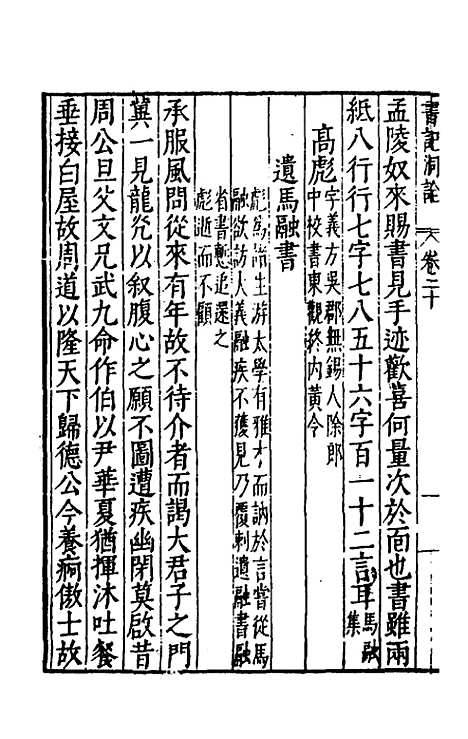 書記洞詮 卷二十 一
孟陵奴來賜書見手迹歡喜何量次於面也書雖兩
紙八行行七字七八五十六字百一十二言耳馬融集
高彪字義方吳郡無錫人除郎中校書東觀終內黃令
遺馬融書
彪爲諸生游太學有雅才而訥於言嘗從馬
融欲訪大義融疾不獲見乃覆刺遺融書融
省書慙追還之
彪逝而不顧
承服風問從來有年故不待介者而謁大君子之門
冀一見龍光以叙腹心之願不圖遭疾幽閉莫啟昔
周公旦父文兄武九命作伯以尹華夏猶揮沐吐餐
垂接白屋故周道以隆天下歸德公今養痾傲士故